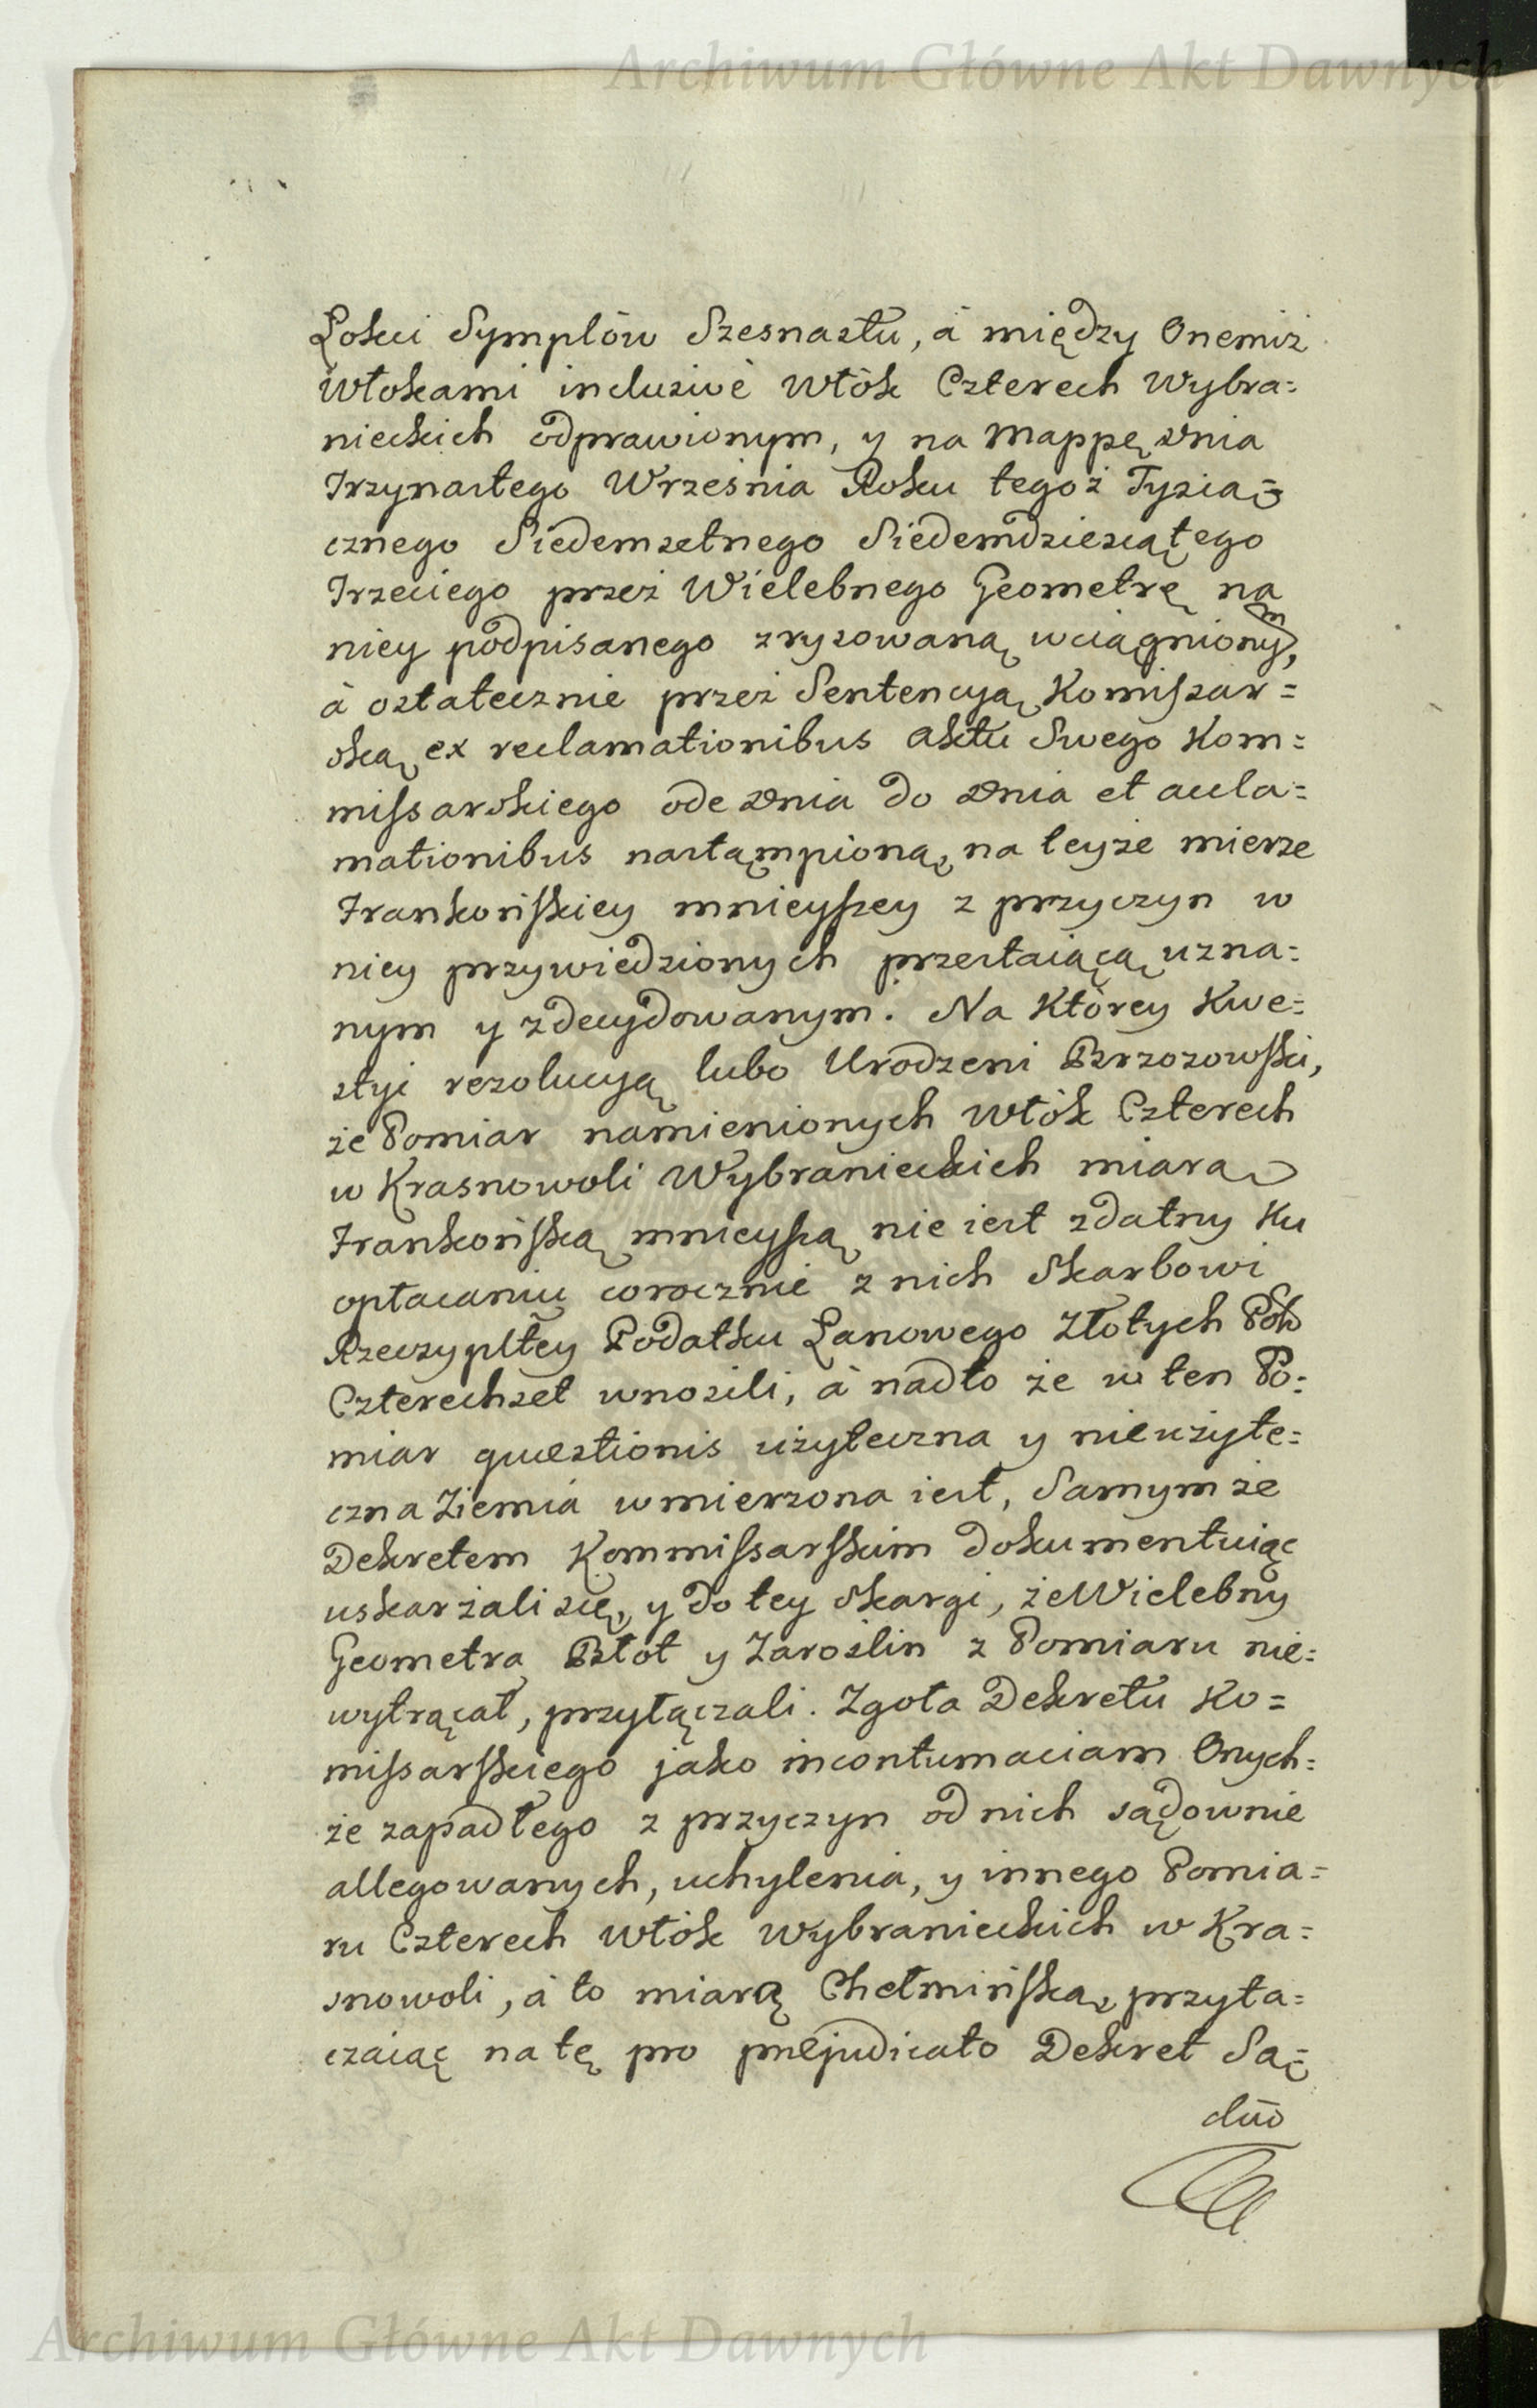 Archiwum Główne Akt Dawnych
Łokci Symplów Szesnastu, á między Onemiż
Włokami inclusivè Włók Czterech Wybra=
nieckich odprawionym, y na Mappę dnia
Trzynastego Września Roku tegoż Tysią=
cznego Siedemsetnego Siedemdziesiątego
Trzeciego przez Wielebnego Geometrę na
niey podpisanego zrysowaną wciągnionym,
á ostatecznie przez Sentencyą Komissar=
ską ex reclamationibus Aktu Swego Kom=
missarskiego ode dnia do dnia et accla=
mationibus nastąmpioną, na teyże mierze
Frankońskiey mnieyszey z przyczyn w
niey przywiedzionych przestaiącą uzna=
nym y zdecydowanym. Na Którey Kwe=
styi rezolucyą lubo Urodzeni Brzozowski,
że Pomiar namienionych Włók Czterech
w Krasnowoli Wybranieckich miarą
Frankońską mnieyszą nie iest zdatny Ku
opłacaniu corocznie z nich Skarbowi
Rzeczypltey Podatku Łanowego Złotych Pols
Czterechset wnosili, á nadto że w ten Po=
miar quæstionis użyteczna y nieużyte=
czna Ziemia wmierzona iest, Samymże
Dekretem Kommissarskim dokumentuiąc
uskarżali się, y do tey Skargi, że Wielebny
Geometra Błot y Zaroślin z Pomiaru nie=
wytrącał, przyłączali. Zgoła Dekretu Ko=
missarskiego jako incontumaciam Onych=
że zapadłego z przyczyn od nich sądownie
allegowanych, uchylenia, y innego Pomia=
ru Czterech Włók Wybranieckich w Kra=
snowoli, á to miarą Chełmińską, przyta=
czaiąc na tę pro præjudicato Dekret Są=
duo
Archiwum Główne Akt Dawnych